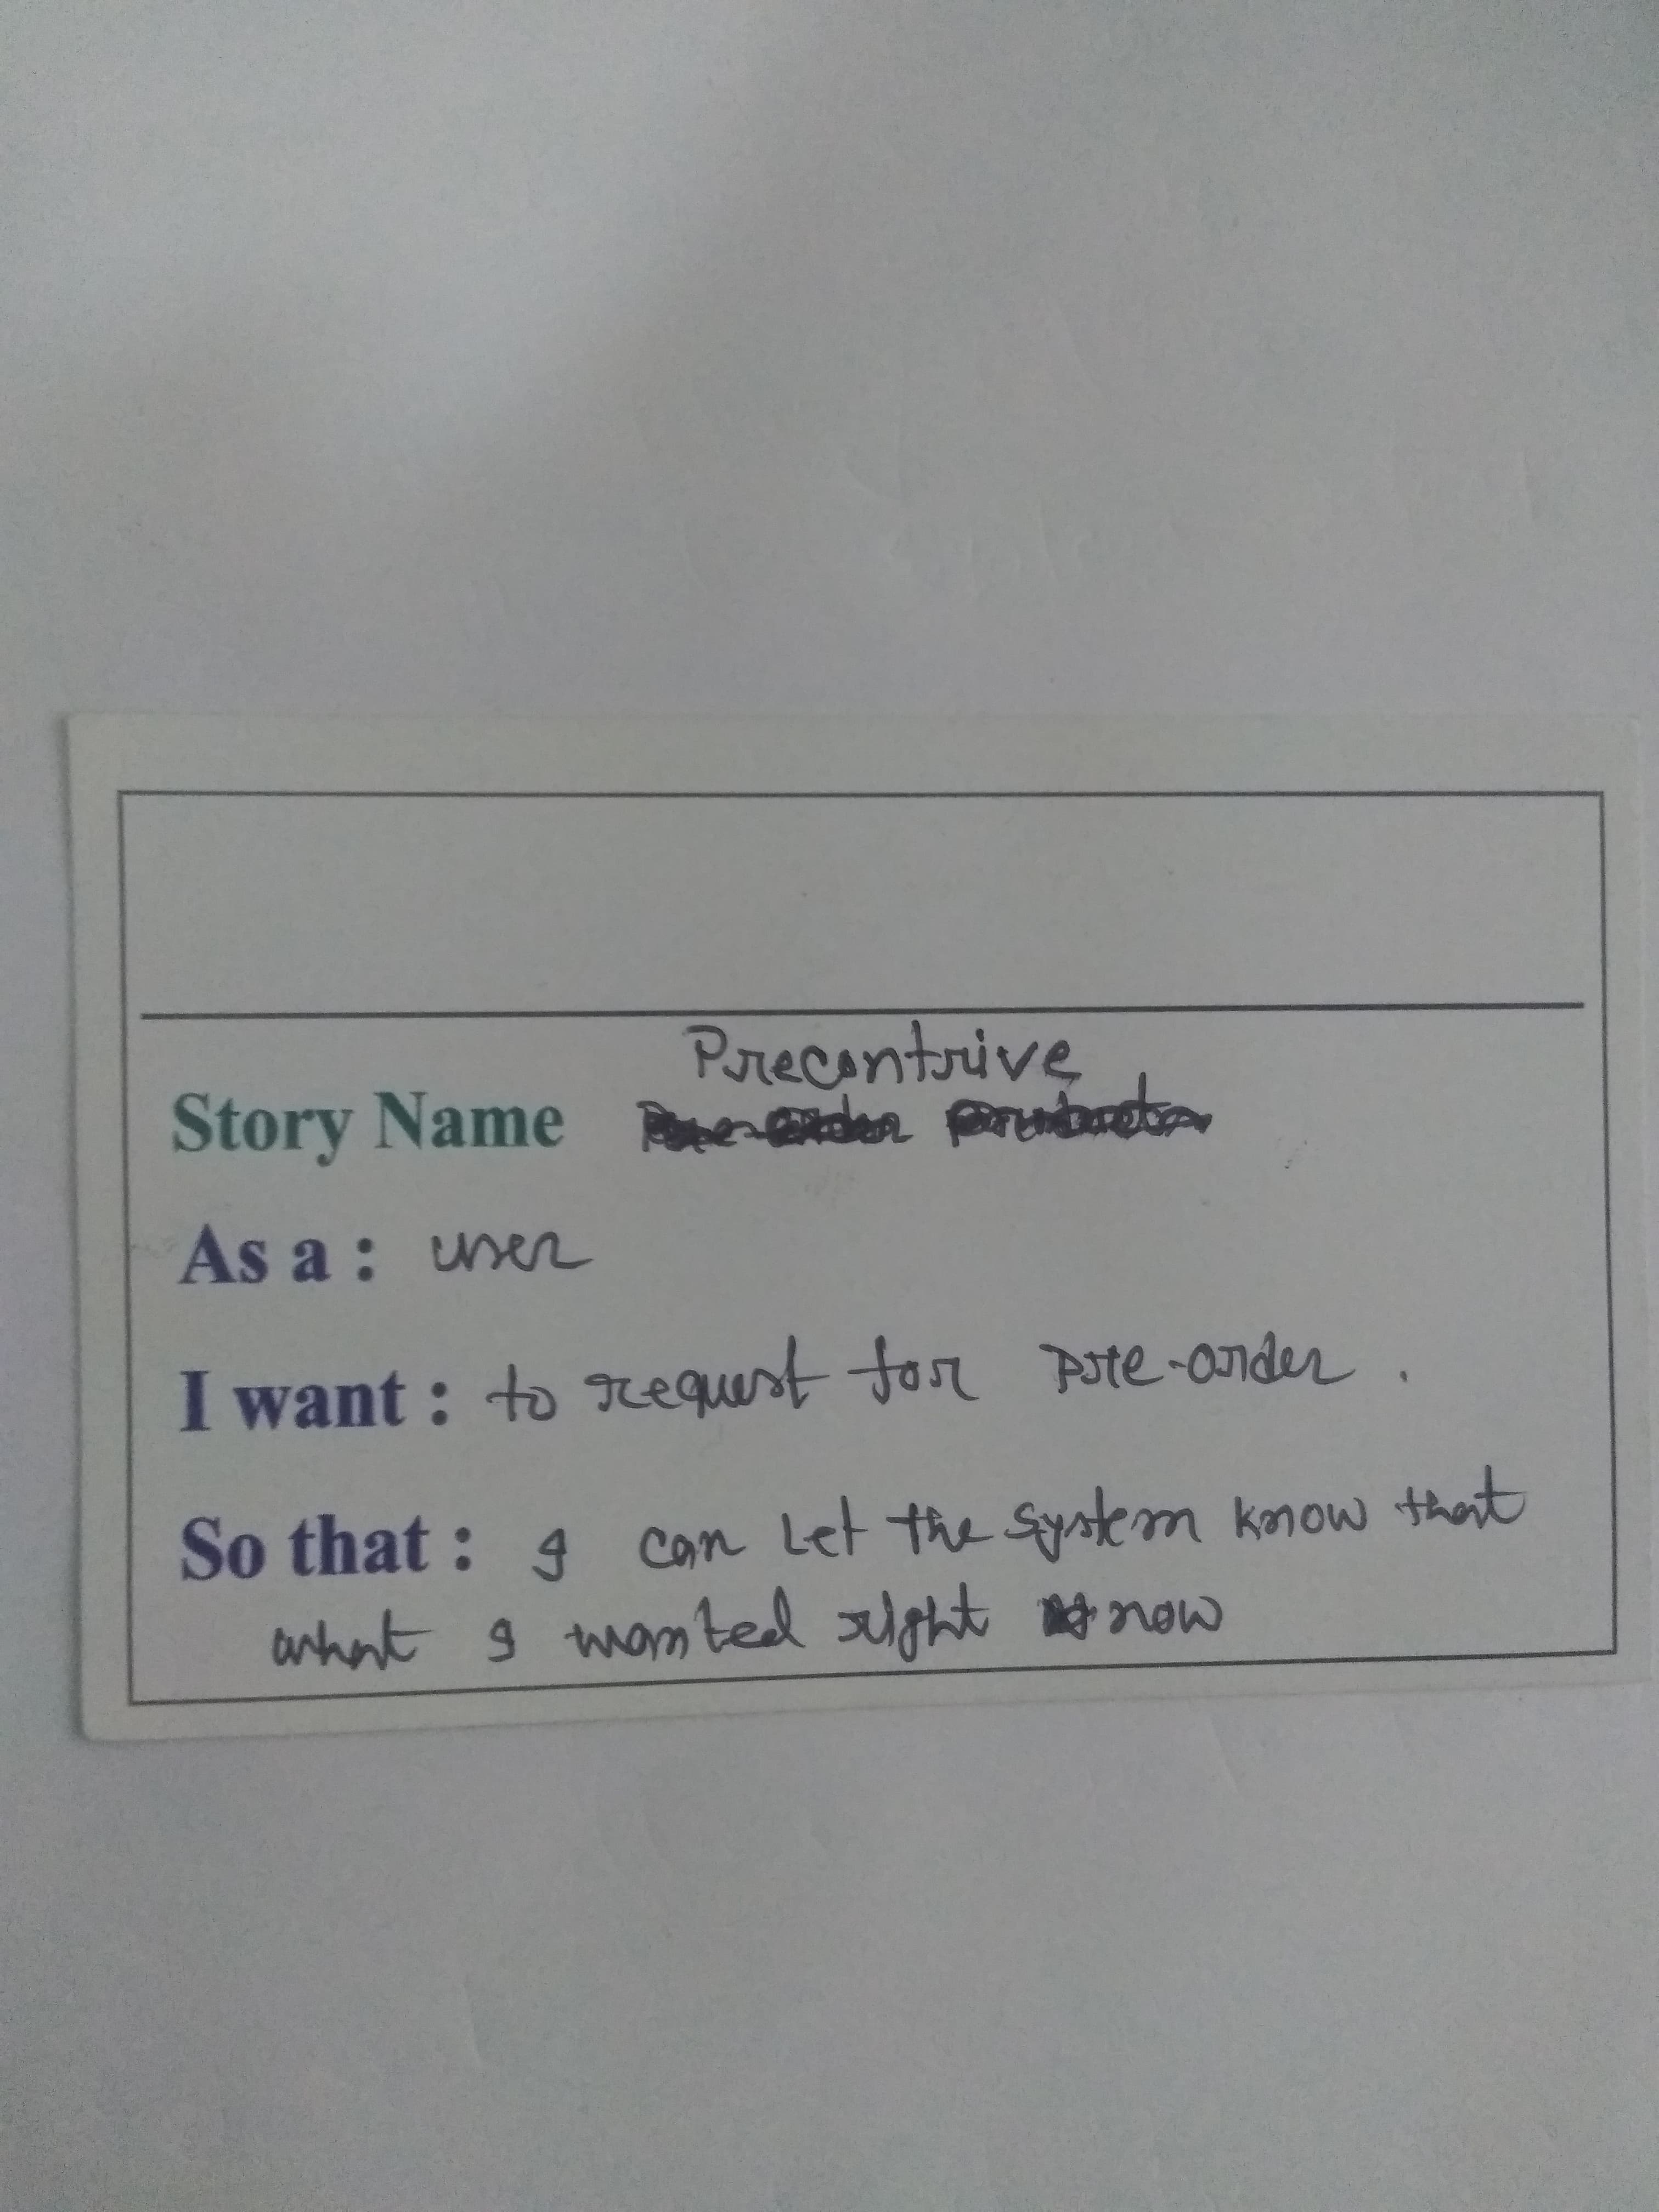 Precontrive
Story Name
As a : user
I want : to request for pre-order .
So that : I can let the system know that
what I wanted right now